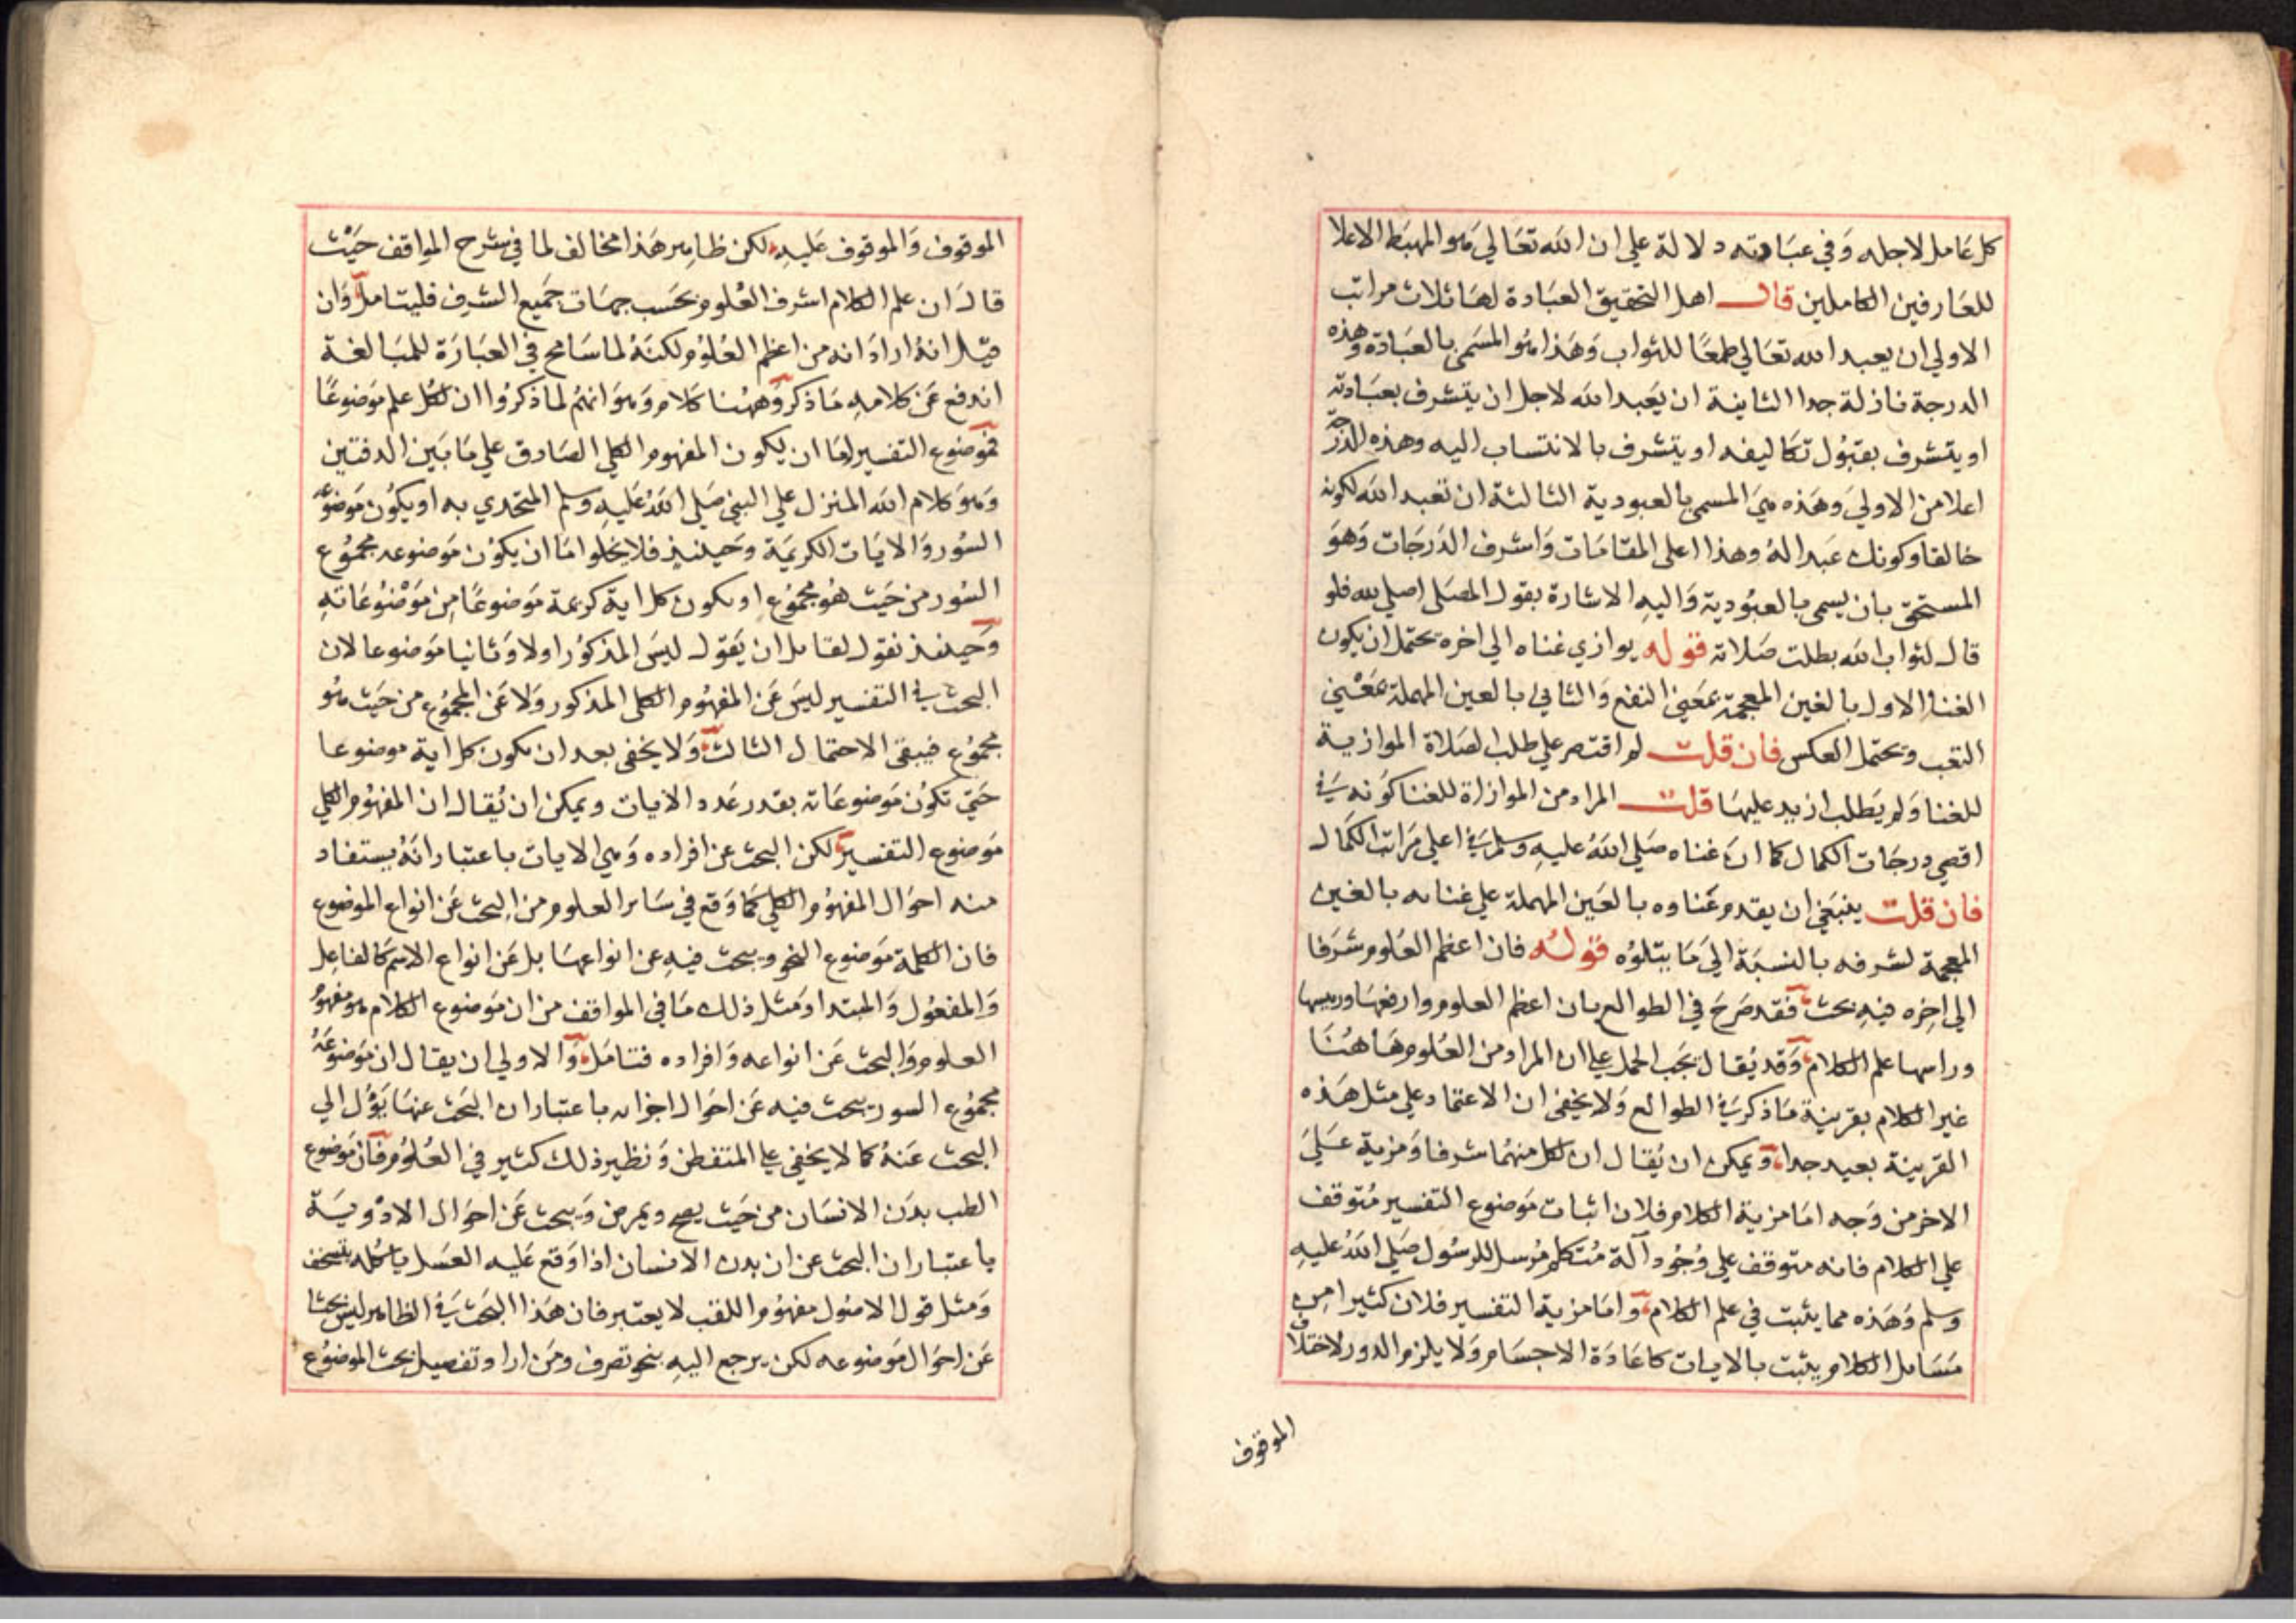 كل عامل لاجله وفي عبادته دلالة علي ان الله تعالي هو المهبط الاعلا
للعارفين الكاملين قال اهل التحقيق العبادة لها ثلاث مراتب
الاولي ان يعبد الله تعالي طمعا للثواب وهذا هو المسمى بالعبادة وهذه
الدرجة نازلة جدا الثانية ان يعبد الله لاجل ان يتشرف بعبادته
او يتشرف بقبول تكاليفه او يتشرف بالانتساب اليه وهذه الدرجة
اعلا من الاولي وهذه هي المسمى بالعبودية الثالثة ان تعبد الله لكونه
خالقا وكونك عبدا له وهذا اعلى المقامات واشرف الدرجات وهو
المستحق بان يسمى بالعبودية واليه الاشارة بقول المصلى اصلي لله فلو
قال لثواب الله بطلت صلاته قوله يوازي غناه الي اخره يحتمل ان يكون
الغنا الاول بالغين المعجمة بمعني النفع والثاني بالعين المهملة بمعني
التعب ويحتمل العكس فان قلت لم اقتصر علي طلب الصلاة الموازية
للغنا ولم يطلب ازيد عليها قلت المراد من الموازاة للغنا كونه في
اقصي درجات الكمال كما ان غناه صلي الله عليه وسلم في اعلي مراتب الكمال
فان قلت ينبغي ان يقدم عناوه بالعين المهملة علي غنائه بالغين
المعجمة لشرفه بالنسبة الي ما يتلوه قوله فان اعظم العلوم شرفا
الي اخره فيه بحث فقد صرح في الطوالع بان اعظم العلوم وارفعها ورييسها
وراسها علم الكلام وقد يقال يجب الحمل علي ان المراد من العلوم هاهنا
غير الكلام بقرينة ما ذكر في الطوالع ولا يخفي ان الاعتماد علي مثل هذه
القرينة بعيد جدا ويمكن ان يقال ان لكل منهما شرفا ومزية علي
الاخر من وجه اما مزية الكلام فلان اثبات موضوع التفسير متوقف
علي الكلام فانه متوقف علي وجود آلة متكلم مرسل للرسول صلي الله عليه
وسلم وهذه مما يثبت في علم الكلام واما مزية التفسير فلان كثيرا من
مسايل الكلام يثبت بالايات كاعادة الاجسام ولا يلزم الدور لاختلاف
الموقوف
الموقوف والموقوف عليه لكن ظاهر هذا مخالف لما في شرح المواقف حيث
قال ان علم الكلام اشرف العلوم بحسب جهات جميع الشرف فليتامل وان
قيل انه اراد انه من اعظم العلوم لكنه لما سامح في العبارة للمبالغة
اندفع عن كلامه ما ذكر وههنا كلام وهو انهم لما ذكروا ان لكل علم موضوعا
فموضوع التفسير اما ان يكون المفهوم الكلي الصادق علي ما بين الدفتين
وهو كلام الله المنزل علي النبي صلي الله عليه وسلم المتحدي به او يكون موضوعه
السور والايات الكريمة وحينئذ فلا يخلوا اما ان يكون موضوعه مجموع
السور من حيث هو مجموع او يكون كل اية كريمة موضوعا من موضوعاته
وحينئذ نقول لقايل ان يقول ليس المذكور اولا وثانيا موضوعا لان
البحث في التفسير ليس عن المفهوم الكلى المذكور ولا عن المجموع من حيث هو
مجموع فيبقى الاحتمال الثالث ولا يخفى بعد ان يكون كل اية موضوعا
حتي تكون موضوعاته بقدر عدد الايات ويمكن ان يقال ان المفهوم الكلي
موضوع التفسير لكن البحث عن افراده وهي الايات باعتبار انه يستفاد
منه احوال المفهوم الكلي كما وقع في ساير العلوم من البحث عن انواع الموضوع
فان الكلمة موضوع النحو ويبحث فيه عن انواعها بل عن انواع الاسم كالفاعل
والمفعول والمبتدا ومثل ذلك ما في المواقف من ان موضوع الكلام هو مفهوم
العلوم والبحث عن انواعه وافراده فتامل والاولي ان يقال ان موضوعه
مجموع السور يبحث فيه عن احوال اجزائه باعتبار ان البحث عنها يؤل الي
البحث عنه كما لا يخفي علي المتفطن ونظير ذلك كثير في العلوم فان موضوع
الطب بدن الانسان من حيث يصح ويمرض ويبحث عن احوال الادوية
باعتبار ان البحث عن ان بدن الانسان اذا وقع عليه العسل باكله يتسخن
ومثل قول الاصول مفهوم اللقب لا يعتبر فان هذا البحث في الظاهر ليس بحثا
عن احوال موضوعه لكن يرجع اليه بنحو تصرف ومن اراد تفصيل بحث الموضوع